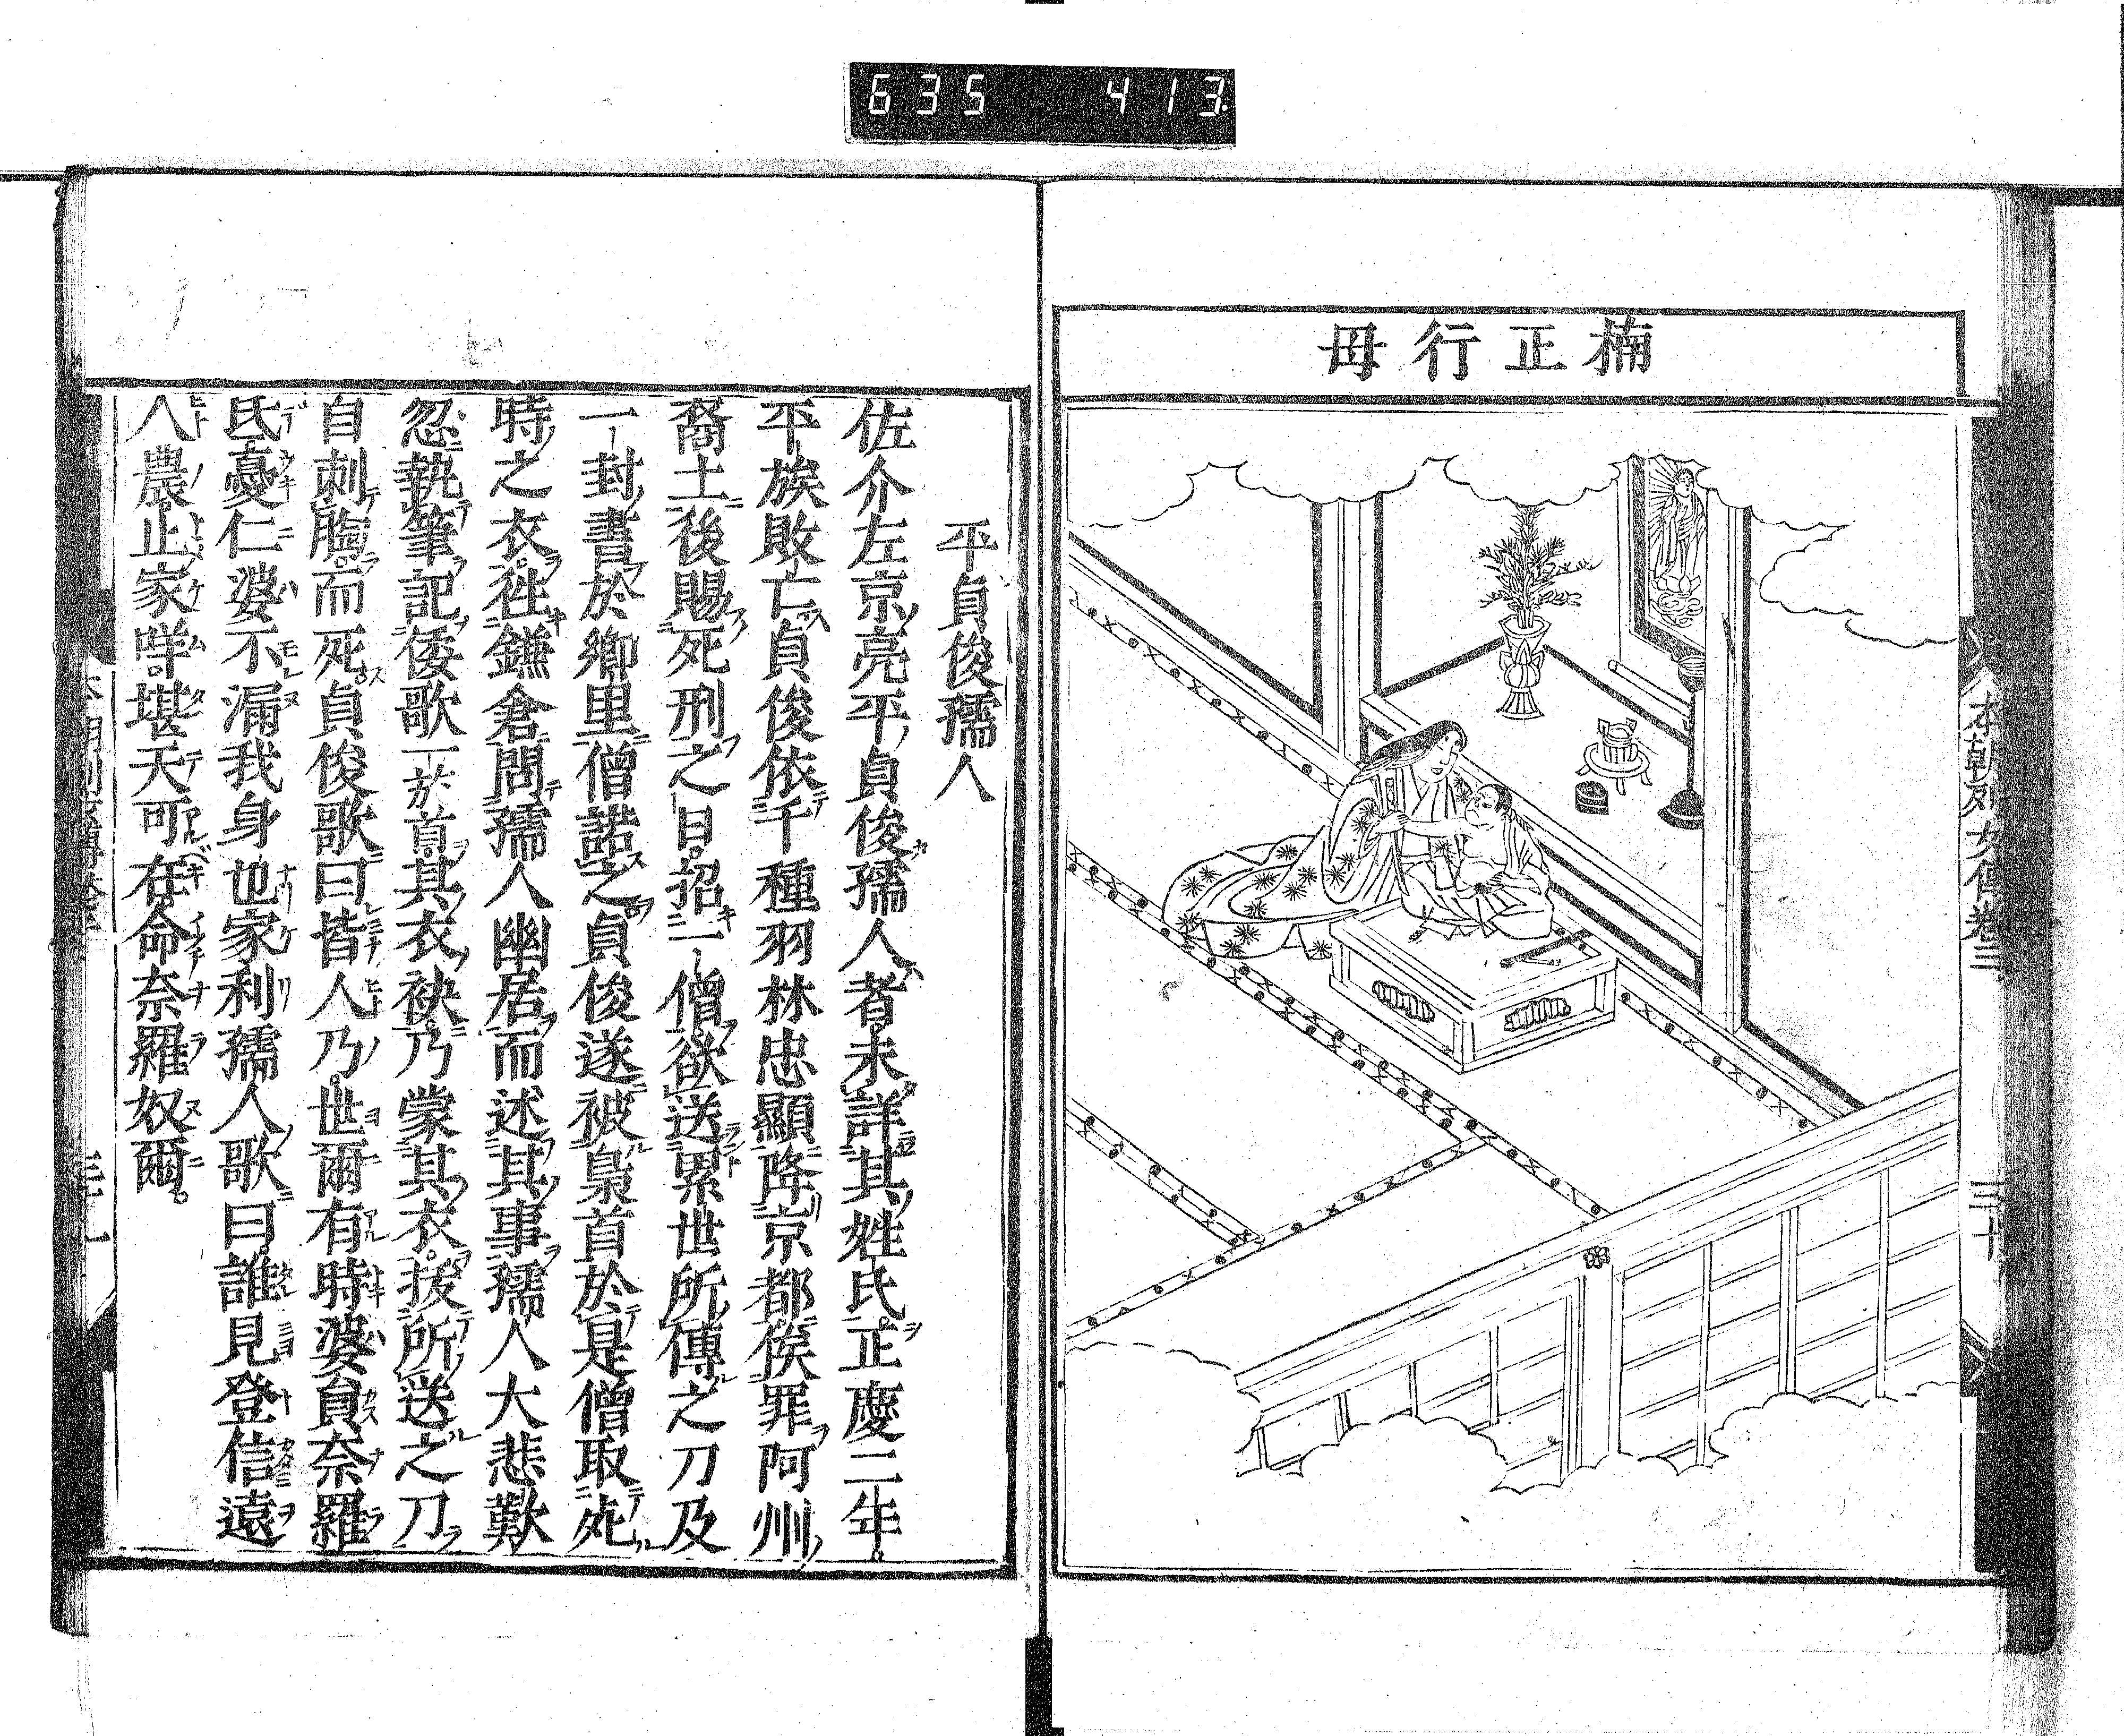 635 413
楠正行母
本朝列女傳卷三
三十
平貞俊孺人
佐介左京亮平貞俊孺人者未詳其姓氏正慶二年
平族敗亡貞俊依千種羽林忠顯降京都俟罪阿州
裔土後賜死刑之日招一僧欲送累世所傳之刀及
一封書於鄉里僧諾之貞俊遂被梟首於是僧取死
時之衣徃鎌倉問孺人幽居而述其事孺人大悲歎
忽執筆記倭歌一於首其衣袂乃蒙其衣拔所送之刀
自刺胸而死貞俊歌曰皆人乃世爾有時婆員奈羅
氐憂仁婆不漏我身也家利孺人歌曰誰見登信遠
人農止家咩堪天可在命奈羅奴爾